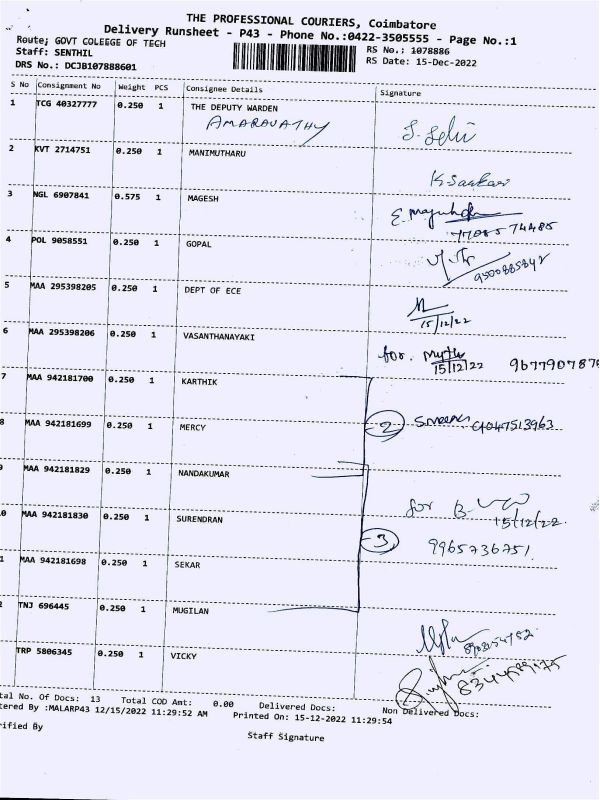 THE PROFESSIONAL COURIERS, Coimbatore
Delivery Runsheet - P43 - Phone No.:0422-3505555 - Page No.:1
Route; GOVT COLEEGE OF TECH RS No.: 1078886
Staff: SENTHIL RS Date: 15-Dec-2022
DRS No.: DCJB107888601
S No Consignment No Weight PCS Consignee Details Signature
1 TCG 40327777 0.250 1 THE DEPUTY WARDEN
AMARAVATHY S. Selvi
2 KVT 2714751 0.250 1 MANIMUTHARU
K. Sankar
3 NGL 6907841 0.575 1 MAGESH
77085 74485
4 POL 9058551 0.250 1 GOPAL
9500885842
5 MAA 295398205 0.250 1 DEPT OF ECE
15/12/22
6 MAA 295398206 0.250 1 VASANTHANAYAKI
for. 15/12/22 967790787
7 MAA 942181700 0.250 1 KARTHIK
8 MAA 942181699 0.250 1 MERCY 2 9047513963
MAA 942181829 0.250 1 NANDAKUMAR
for B. 15/12/22
0 MAA 942181830 0.250 1 SURENDRAN
3 9965736751
1 MAA 942181698 0.250 1 SEKAR
2 TNJ 696445 MUGILAN
0.250 1
TRP 5806345 0.250 1 VICKY
tal No. Of Docs: 13 Total COD Amt: 0.00 Delivered Docs: Non Delivered Docs:
tered By :MALARP43 12/15/2022 11:29:52 AM Printed On: 15-12-2022 11:29:54
rified By Staff Signature